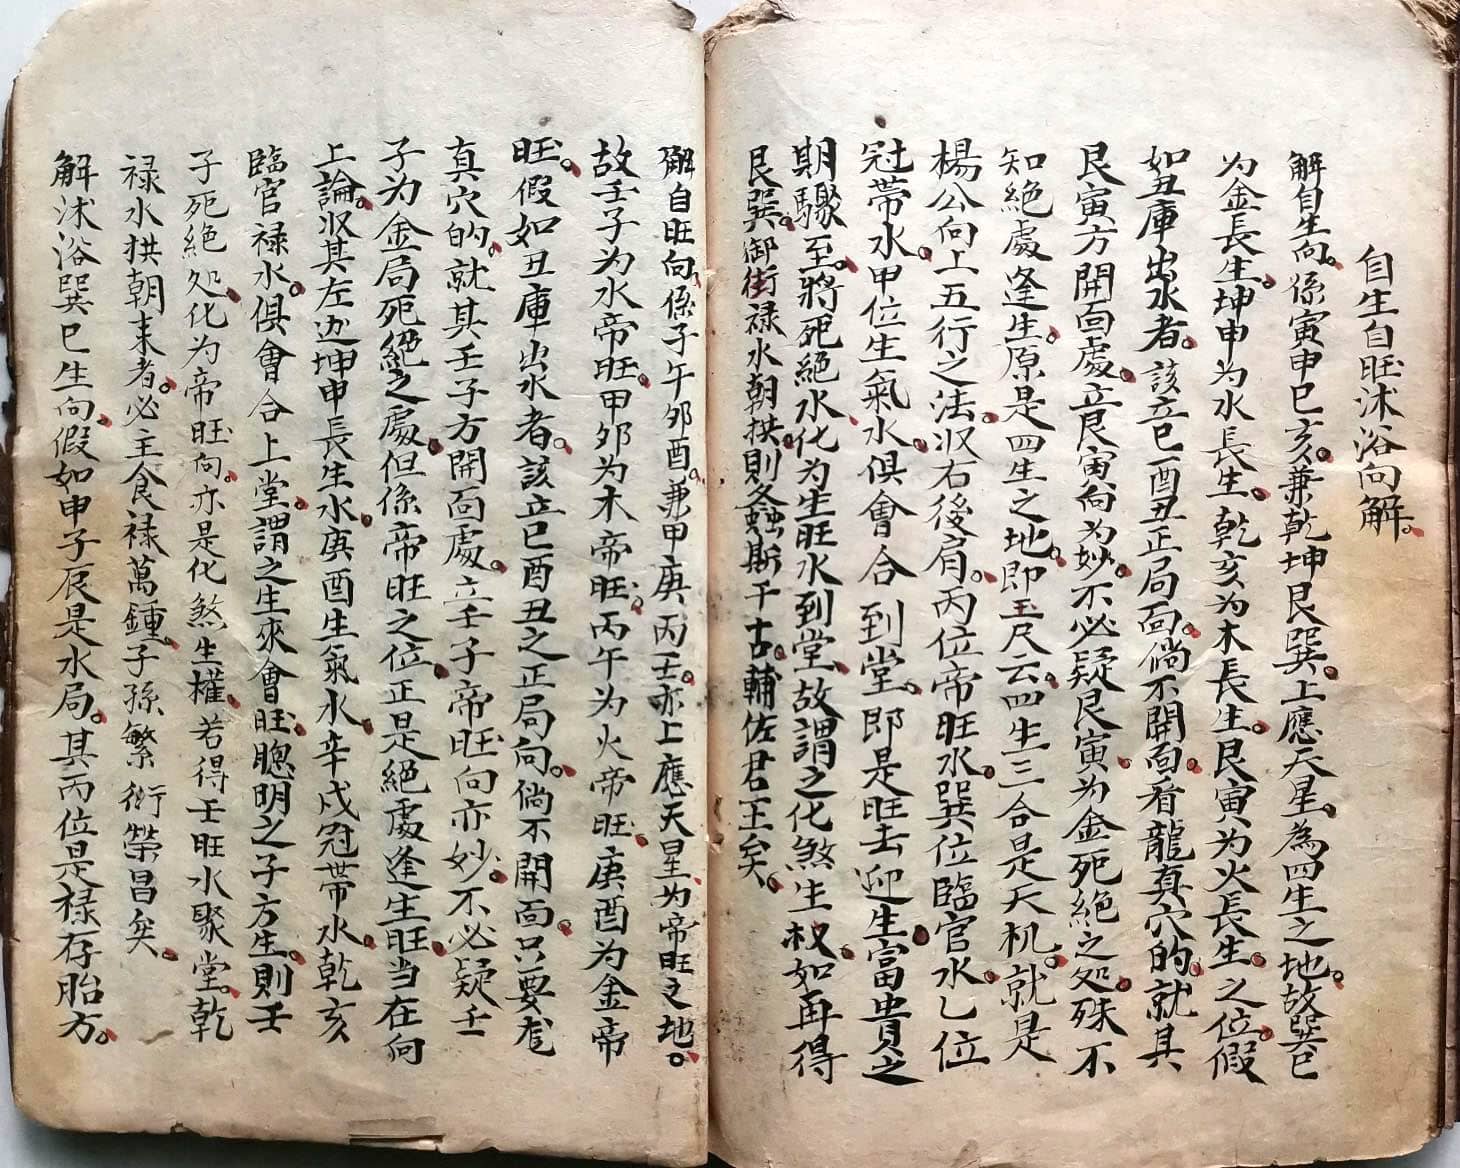 自生自旺沭浴向解。
解自生向。係寅申巳亥。兼乾坤艮巽。上應天星。為四生之地。故巽巳
为金長生。坤申为水長生。乾亥为木長生。艮寅为火長生。之位。假
如丑庫出水者。該立巳酉丑正局面。倘不開面。看龍真穴的。就其
艮寅方開面處。立艮寅向为妙。不必疑艮寅。为金死絶之処。殊不
知絶處逢生。原是四生之地。即玉尺云。四生三合是天机。就是
楊公向上五行之法。収右後肩。丙位帝旺水。巽位臨官水。乙位
冠帶水。甲位生氣水。俱會合到堂。即是旺去迎生。富貴之
期驟至。將死絶水。化为生旺水到堂。故謂之化煞生权。如再得
艮巽。御街禄水朝拱。則螽斯千古。輔佐君王矣。
解自旺向。係子午夘酉。兼甲庚丙壬。亦上應天星。为帝旺之地。
故壬子为水帝旺。甲夘为木帝旺。丙午为火帝旺。庚酉为金帝
旺。假如丑庫出水者。該立巳酉丑之正局向。倘不開面。只要龙
真穴的。就其壬子方開面處。立壬子帝旺向亦妙。不必疑壬
子为金局死絶之處。但係帝旺之位。正是絕處逢生旺。当在向
上論。収其左边坤申長生水。庚酉生氣水。辛戌冠帶水。乾亥
臨官禄水。俱會合上堂。謂之生來會旺。聰明之子方生。則壬
子死絶処。化为帝旺向。亦是化煞生權。若得壬旺水聚堂。乾
禄水拱朝来者。必主食禄萬鍾。子孫繁衍榮昌矣。
解沭浴巽巳生向。假如申子辰是水局。其丙位是禄存胎方。